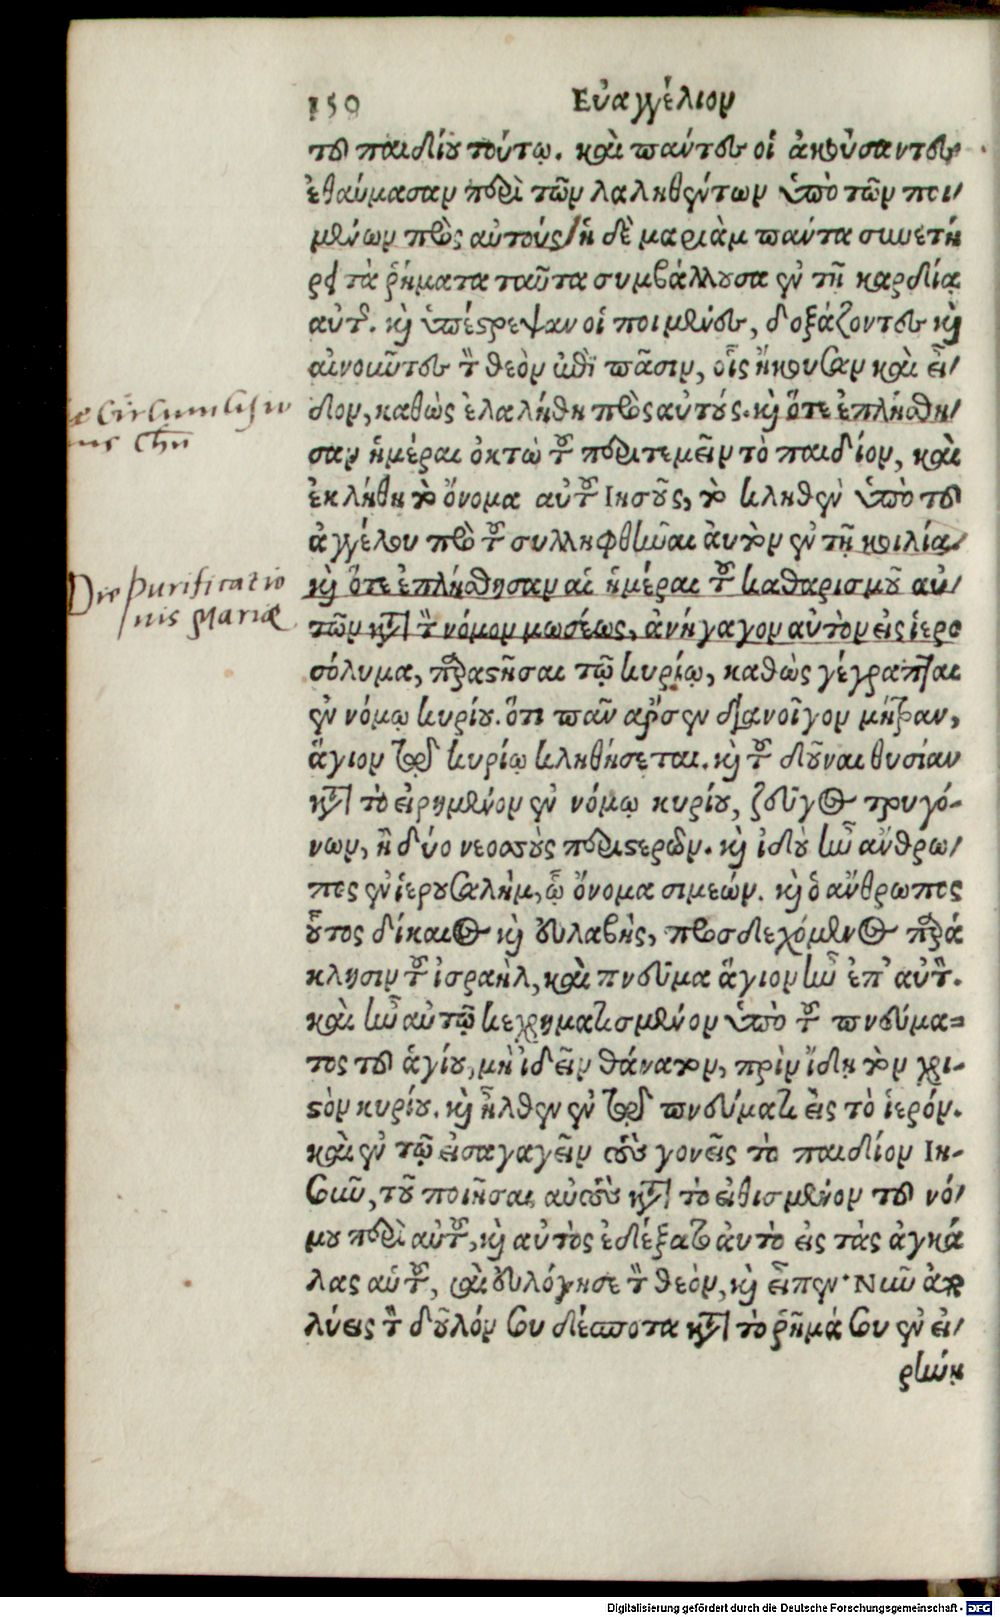 150 Εὐαγγέλιον
τοῦ παιδίου τούτῳ. καὶ πάντες οἱ ἀκούσαντες
ἐθαύμασαν περὶ τῶν λαληθέντων ὑπὸ τῶν ποι/
μένων πρὸς αὐτούς/ ἡ δὲ μαριὰμ πάντα συνετή
ρει τὰ ῥήματα ταῦτα συμβάλλουσα ἐν τῇ καρδίᾳ
αὑτῆς. καὶ ὑπέστρεψαν οἱ ποιμένες, δοξάζοντες καὶ
αἰνοῦντες τὸν θεὸν ἐπὶ πᾶσιν, οἷς ἤκουσαν καὶ εἶ/
διον, καθὼς ἐλαλήθη πρὸς αὐτούς. καὶ ὅτε ἐπλήσθη/
σαν ἡμέραι ὀκτὼ τοῦ περιτεμεῖν τὸ παιδίον, καὶ
ἐκλήθη τὸ ὄνομα αὐτοῦ Ιησοῦς, τὸ κληθὲν ὑπὸ τοῦ
ἀγγέλου πρὸ τοῦ συλληφθῆναι ἀυτὸν ἐν τῇ κοιλίᾳ.
καὶ ὅτε ἐπλήσθησαν αἱ ἡμέραι τοῦ καθαρισμοῦ αὐ/
τῶν κατὰ τὸν νόμον μωσέως, ἀνήγαγον αὐτὸν εἰς ἱερο
σόλυμα, παραστῆσαι τῷ κυρίῳ, καθὼς γέγραπται
ἐν νόμῳ κυρίου. ὅτι πᾶν ἄρσεν διανοῖγον μήτραν,
ἅγιον τῷ κυρίῳ κληθήσεται. καὶ τοῦ δοῦναι θυσίαν
κατὰ τὸ εἰρημένον ἐν νόμῳ κυρίου, ζεῦγος τρυγό-
νων, ἢ δύο νεοσσοὺς περιστερῶν. καὶ ἰδοὺ ἦν ἄνθρω/
πος ἐν ἱερουσαλὴμ, ᾧ ὄνομα σιμεών. καὶ ὁ ἄνθρωπος
οὗτος δίκαιος καὶ εὐλαβὴς, προσδεχόμενος παρά
κλησιν τοῦ ἰσραὴλ, καὶ πνεῦμα ἅγιον ἦν ἐπ' αὐτὸν.
καὶ ἦν αὐτῷ κεχρηματισμένον ὑπὸ τοῦ πνεύμα=
τος τοῦ ἁγίου, μὴ ἰδεῖν θάνατον, πρὶν ἴδῃ τὸν χρι-
στὸν κυρίου. καὶ ἦλθεν ἐν τῷ πνεύματι εἰς τὸ ἱερόν.
καὶ ἐν τῷ εἰσαγαγεῖν τοὺς γονεῖς τὸ παιδίον Ιη-
σοῦν, τοῦ ποιῆσαι αὐτοὺς κατὰ τὸ εἰθισμένον τοῦ νό/
μου περὶ αὐτοῦ, καὶ αὐτὸς ἐδέξατο ἀυτὸ εἰς τὰς ἀγκά
λας αὑτοῦ, καὶ εὐλόγησε τὸν θεὸν, καὶ εἶπεν· Νῦν ἀπο
λύεις τὸν δοῦλόν σου δέσποτα κατὰ τὸ ῥῆμά σου ἐν εἰ/
ρήνῃ
Die Purificatio
nis Mariæ
Digitalisierung gefördert durch die Deutsche Forschungsgemeinschaft - DFG